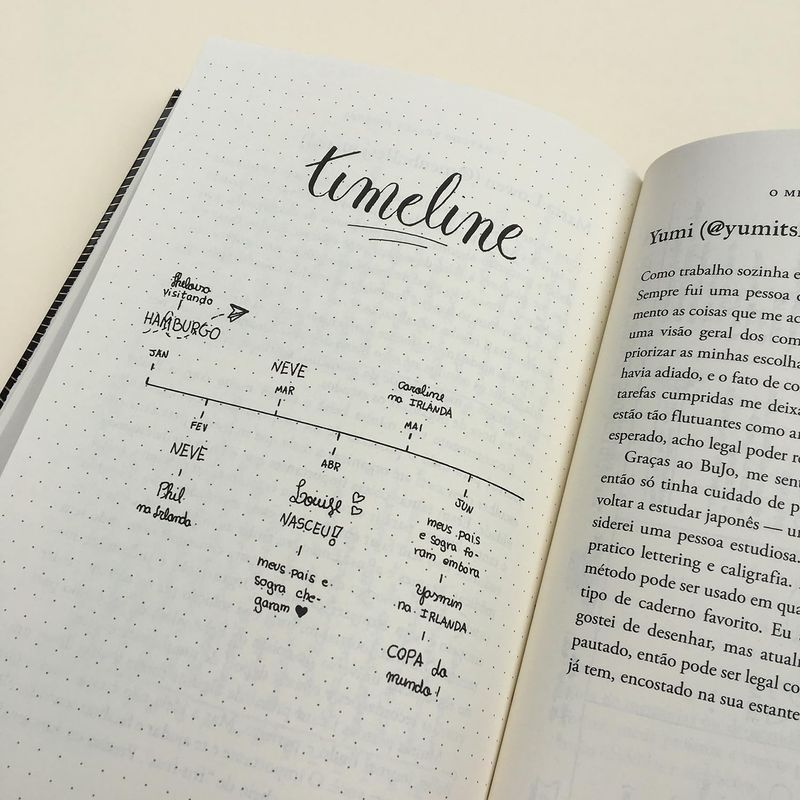 timeline
visitando
HAMBURGO
JAN
NEVE
MAR
caroline
na IRLANDA
MAI
FEV
NEVE
Phil
na Irlanda
ABR
Louise
NASCEU!
meus pais e
sogra che-
garam
JUN
meus pais
e sogra fo-
ram embora
Yasmin
na IRLANDA
COPA do
mundo!
O ME
Yumi (@yumits
Como trabalho sozinha e
Sempre fui uma pessoa
mento as coisas que me ac
uma visão geral dos com
priorizar as minhas escolha
havia adiado, e o fato de co
tarefas cumpridas me deixa
estão tão flutuantes como
esperado, acho legal poder
Graças ao BuJo, me sent
então só tinha cuidado de
voltar a estudar japonês — u
siderei uma pessoa estudiosa.
pratico lettering e caligrafia.
método pode ser usado em qua
tipo de caderno favorito. Eu
gostei de desenhar, mas atual
pautado, então pode ser legal co
já tem, encostado na sua estante